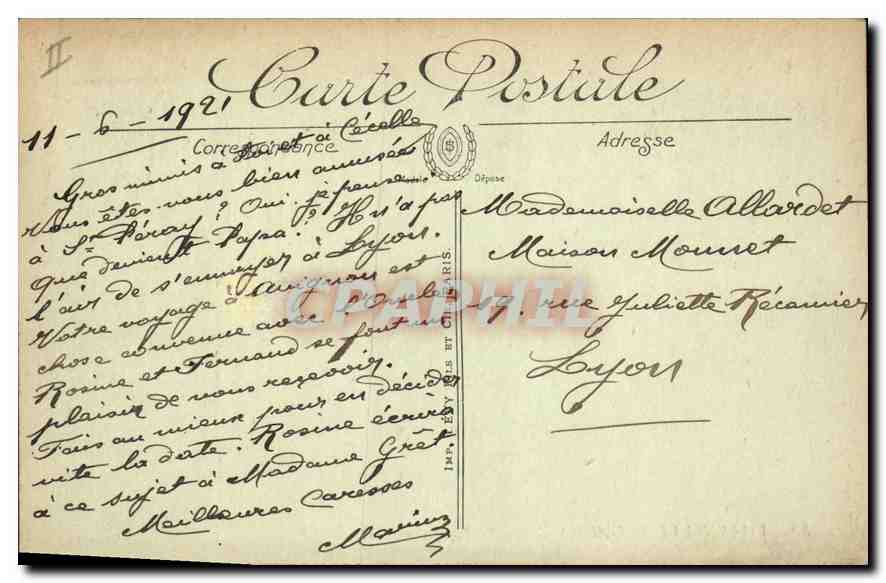 II
Carte Postale
11 - 6 - 1921
Correspondance
Gros mimis à toi et à Cécelle
Vous êtes-vous bien amusées
à St Péray? Oui, je pense.
Que devient Papa? Il n'a pas
l'air de s'ennuyer à Lyon.
Votre voyage à Avignon est
chose convenue avec l'Oncle.
Rosine et Fernand se font un
plaisir de vous recevoir.
Fais au mieux pour en décider
vite la date. Rosine écrira
à ce sujet à Madame Grêt.
Meilleures Caresses
Marius
Modèle Déposé
IMP. LÉVY FILS ET CIE PARIS.
Adresse
Mademoiselle Allardet
Maison Mounet
19, rue Juliette Récamier
Lyon
CPAPHIL